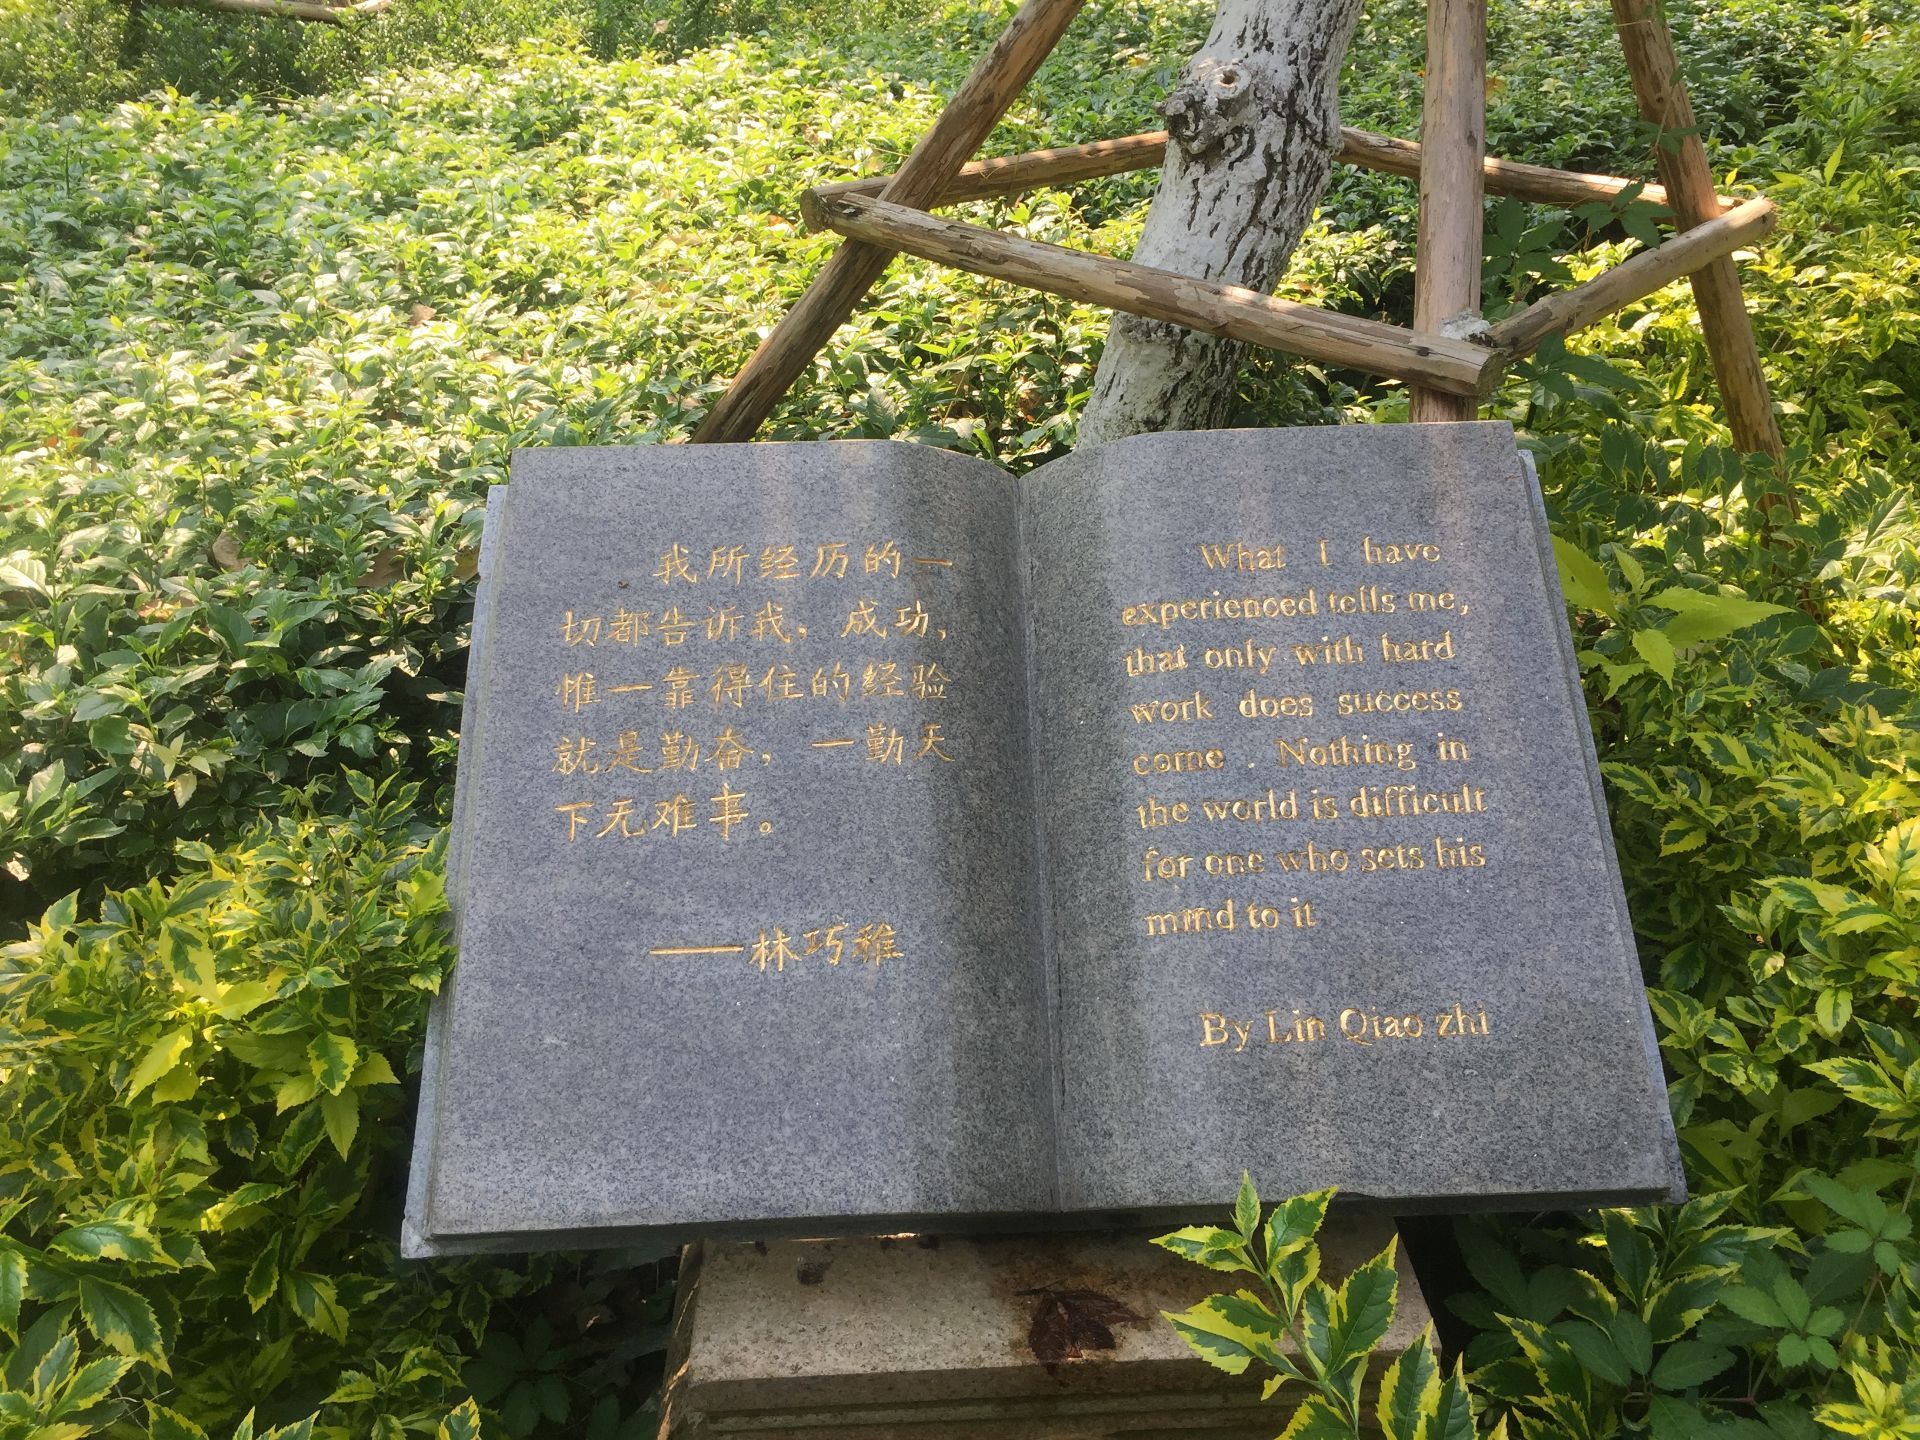 我所经历的一
切都告诉我，成功，
惟一靠得住的经验
就是勤奋，一勤天
下无难事。
——林巧稚
What I have
experienced tells me,
that only with hard
work does success
come . Nothing in
the world is difficult
for one who sets his
mind to it
By Lin Qiao zhi